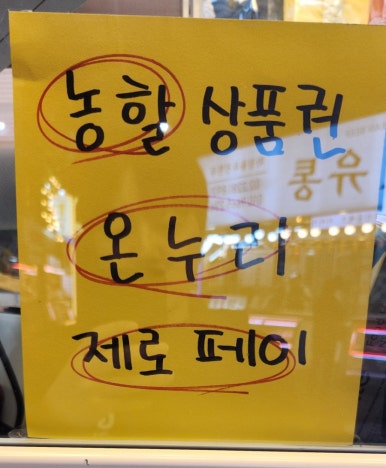 농할 상품권
유통
온누리
제로페이